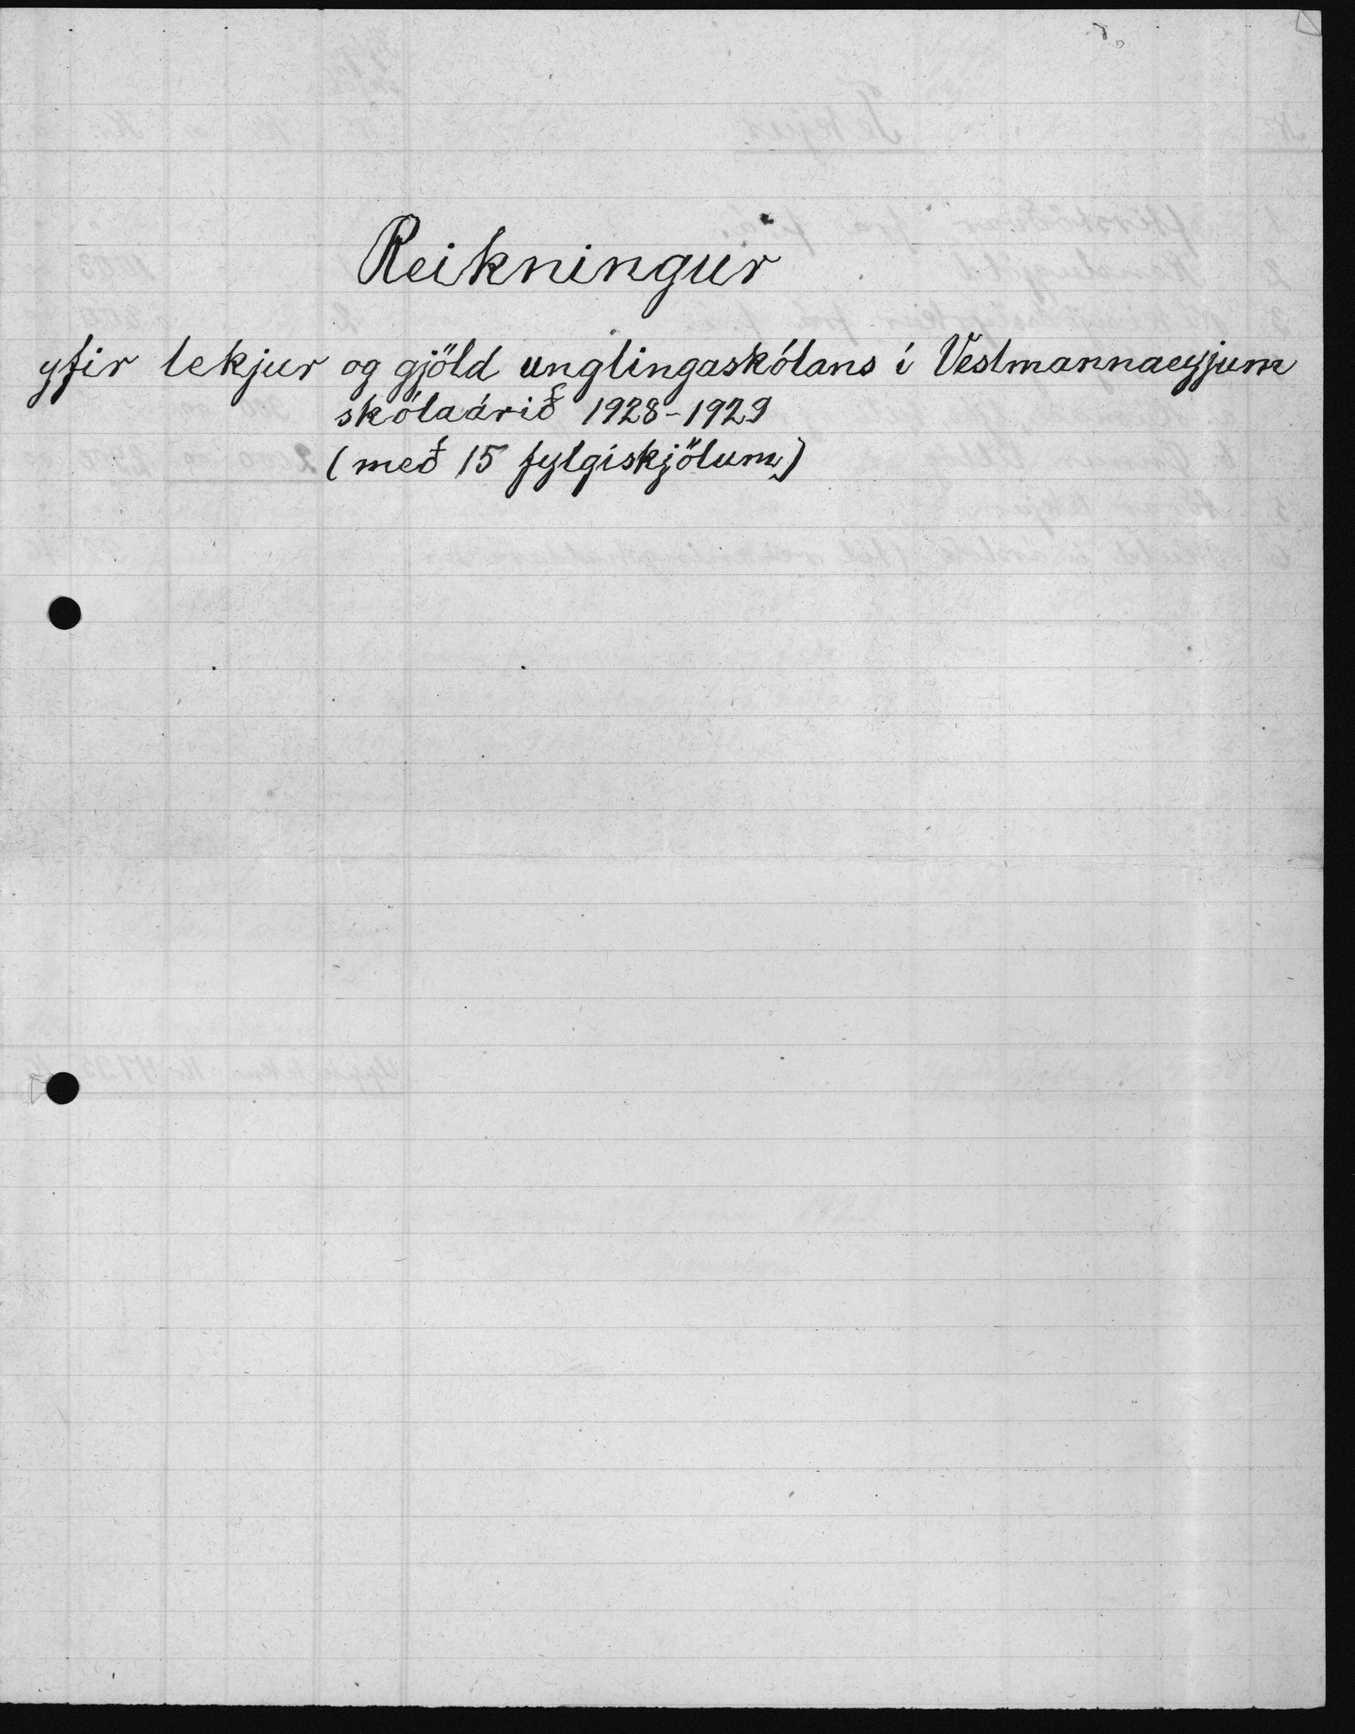 Reikningur
yfir tekjur og gjöld unglingaskólans í Vestmannaeyjum
skólaárið 1928-1929
(með 15 fylgiskjölum)